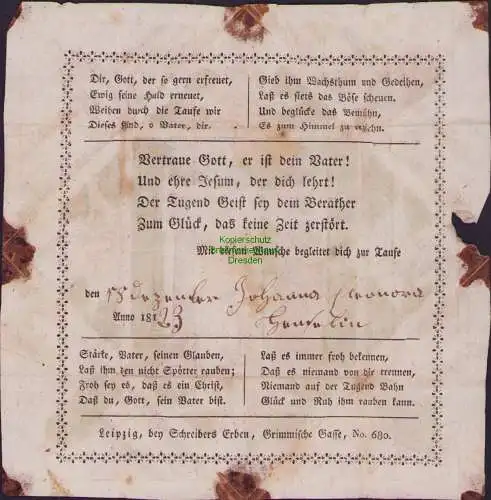 Dir, Gott, der so gern erfreuet,
Ewig seine Huld erneuet,
Weihen durch die Taufe wir
Dieses Kind, o Vater, dir.
Gieb ihm Wachsthum und Gedeihen,
Laß es stets das Böse scheuen,
Und beglücke das Bemühn,
Es zum Himmel zu erziehn.
Vertraue Gott, er ist dein Vater!
Und ehre Jesum, der dich lehrt!
Der Tugend Geist sey dein Berather
Zum Glück, das keine Zeit zerstört.
Mit diesem Wunsche begleitet dich zur Taufe
Kopierschutz
Dresden
den dezember Johanna Eleonora
Anno 1823
Stärke, Vater, seinen Glauben,
Laß ihm den nicht Spötter rauben;
Froh sey es, daß es ein Christ,
Daß du, Gott, sein Vater bist.
Laß es immer froh bekennen,
Daß es niemand von dir trennen,
Niemand auf der Tugend Bahn
Glück und Ruh ihm rauben kann.
Leipzig, bey Schreibers Erben, Grimmische Gasse, No. 680.